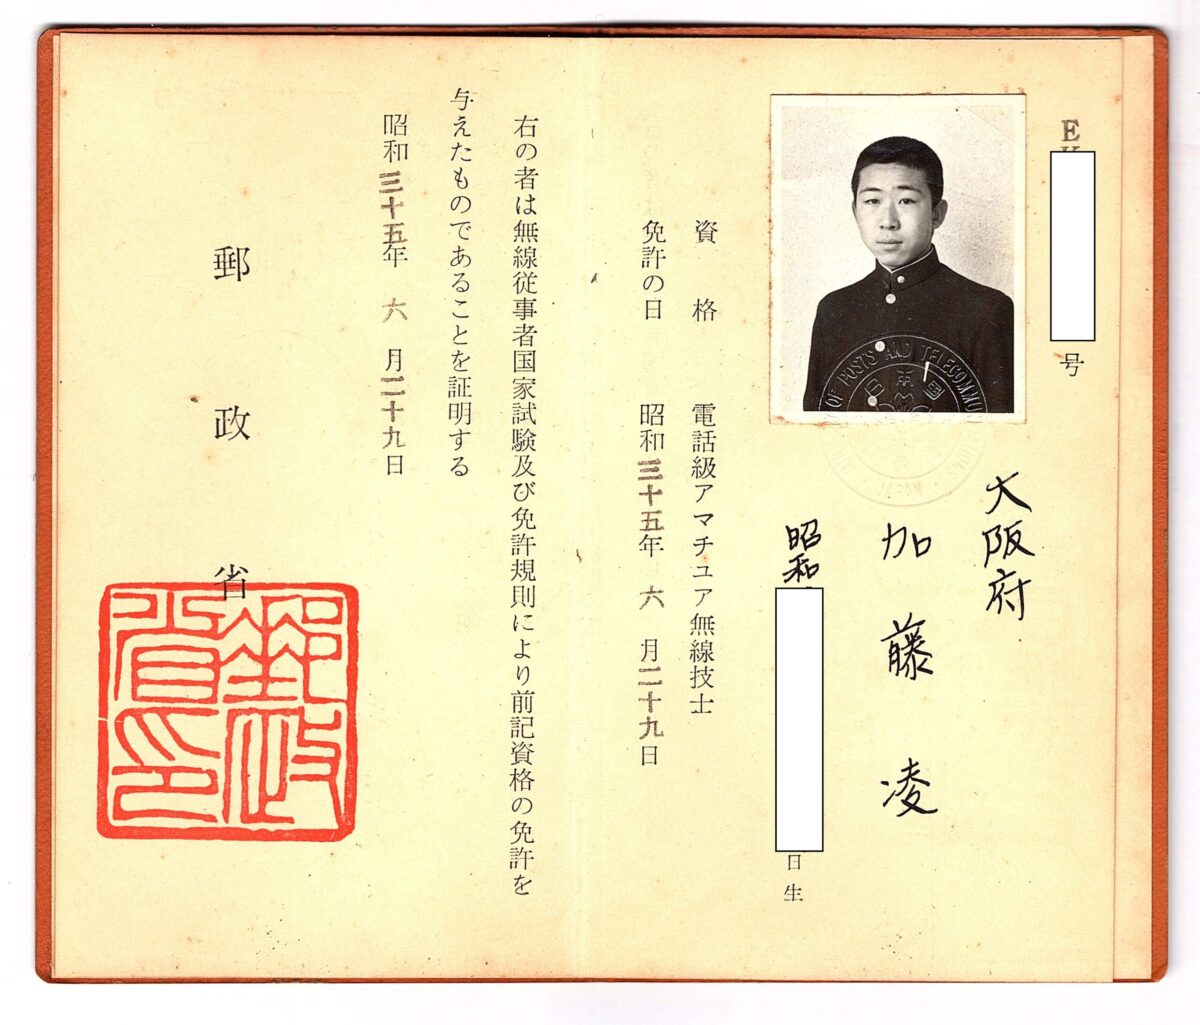 E
号
大阪府
加藤凌
昭和
日生
資格 電話級アマチュア無線技士
免許の日 昭和三十五年 六 月二十九日
右の者は無線従事者国家試験及び免許規則により前記資格の免許を
与えたものであることを証明する
昭和三十五年 六 月二十九日
郵政省
郵政省印
OF POSTS AND TELECOMMU
日本国
JAPAN